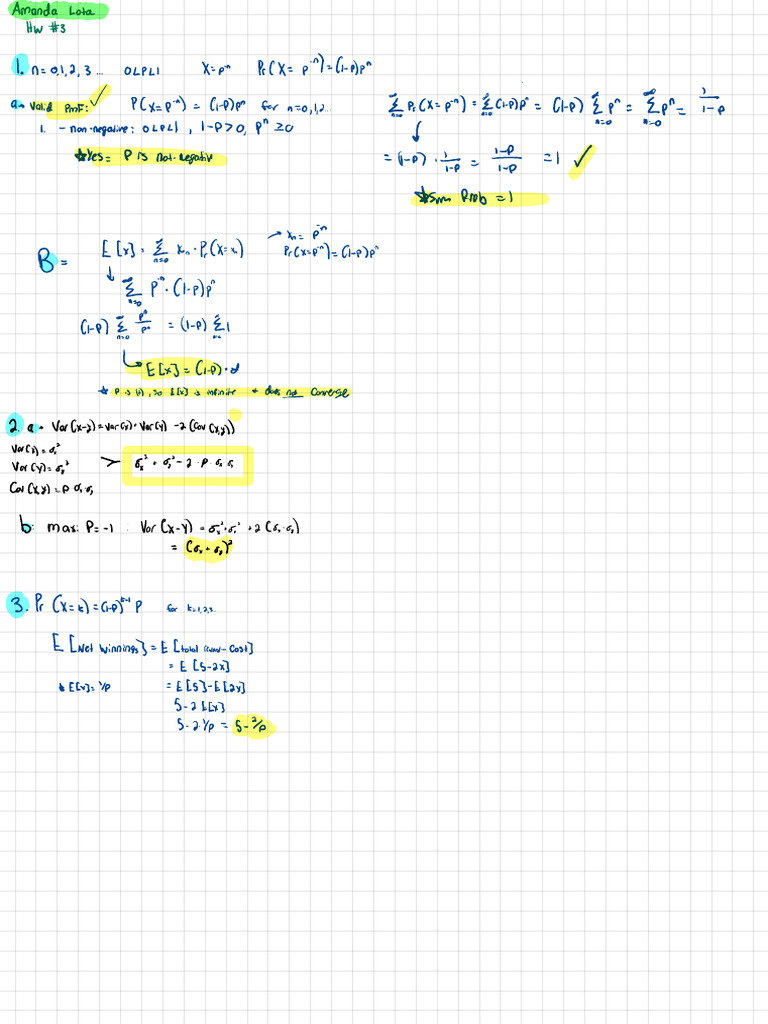 Amanda Lota
HW #3
1. n=0,1,2,3... 0<p<1 X=p⁻ⁿ Pr(X=p⁻ⁿ)=(1-p)pⁿ
a→ Valid PMF: ✓ P(X=p⁻ⁿ) = (1-p)pⁿ for n=0,1,2...
1. - non-negative: 0<p<1, 1-p>0, pⁿ ≥0
★Yes = P is not-negative
∞Σn=0 Pr(X=p⁻ⁿ) = ∞Σn=0 (1-p)pⁿ = (1-p) ∞Σn=0 pⁿ = ∞Σn=0 pⁿ = 1/1-p
= (1-p) · 1/1-p = 1-p/1-p = 1 ✓
★Sum Prob = 1
B = E[x] = ∞Σn=0 xn · Pr(X=xn) → xn = p⁻ⁿ
Pr(X=p⁻ⁿ)=(1-p)pⁿ
↓ ∞Σn=0 p⁻ⁿ · (1-p)pⁿ
(1-p) ∞Σn=0 pⁿ/pⁿ = (1-p) ∞Σn=0 1
E[x] = (1-p) · ∞
★ P is <1, so E[x] is infinite + does not converge
2. a → Var(x-y) = Var(x) + Var(y) - 2(Cov(x,y))
Var(x) = σx²
Var(y) = σy² > σx² + σy² - 2 · p · σx σy
Cov(x,y) = p σx · σy
b: max: P = -1 : Var(X-Y) = σx² + σy² + 2(σx · σy)
= (σx + σy)²
3. Pr(X=k) = (1-p)ᵏ⁻¹ p for k=1,2,3..
E[Net winnings] = E[total reward - Cost]
= E[5-2x]
★ E[x] = 1/p = E[5] - E[2x]
5 - 2 E[x]
5 - 2 · 1/p = 5 - 2/p